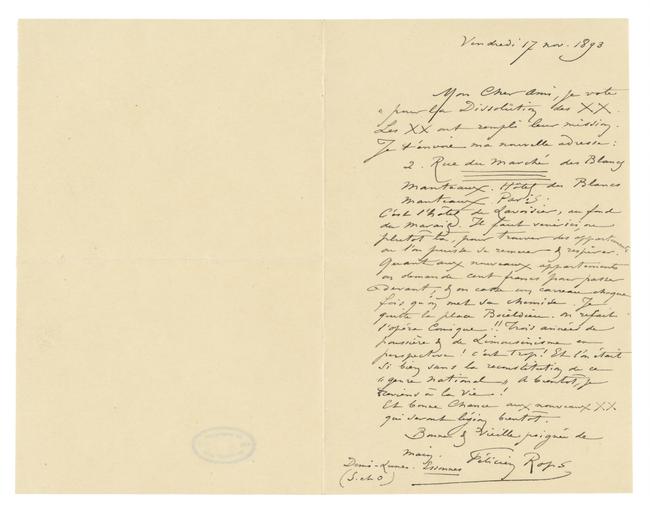 Vendredi 17 nov. 1893
Mon Cher Ami, je vote
« pour la Dissolution des XX.
Les XX ont rempli leur mission.
Je t'envoie ma nouvelle adresse :
2. Rue du Marché des Blancs
Manteaux. Hôtel des Blancs
Manteaux Paris.
C'est l'hôtel de Lavoisier, au fond
du Marais. Il faut venir
plutôt là, pour trouver des appartements
où l'on puisse se remuer & respirer.
Quant aux nouveaux appartements
on demande cent francs pour passer
devant, & on casse un carreau chaque
fois qu'on met sa chemise. Je
quitte la place Boieldieu. on refait
l'opéra Comique !! Trois années de
poussière & de Limousinisme en
perspective ! c'est trop ! Et l'on était
si bien sans la reconstitution de ce
« genre national » A bientôt, je
reviens à la vie !
Et bonne Chance aux nouveaux XX.
qui seront légion bientôt.
Bonne & vieille poignée de
main.
Félicien Rops
Demi-Lune. Essonnes
(S. et O)